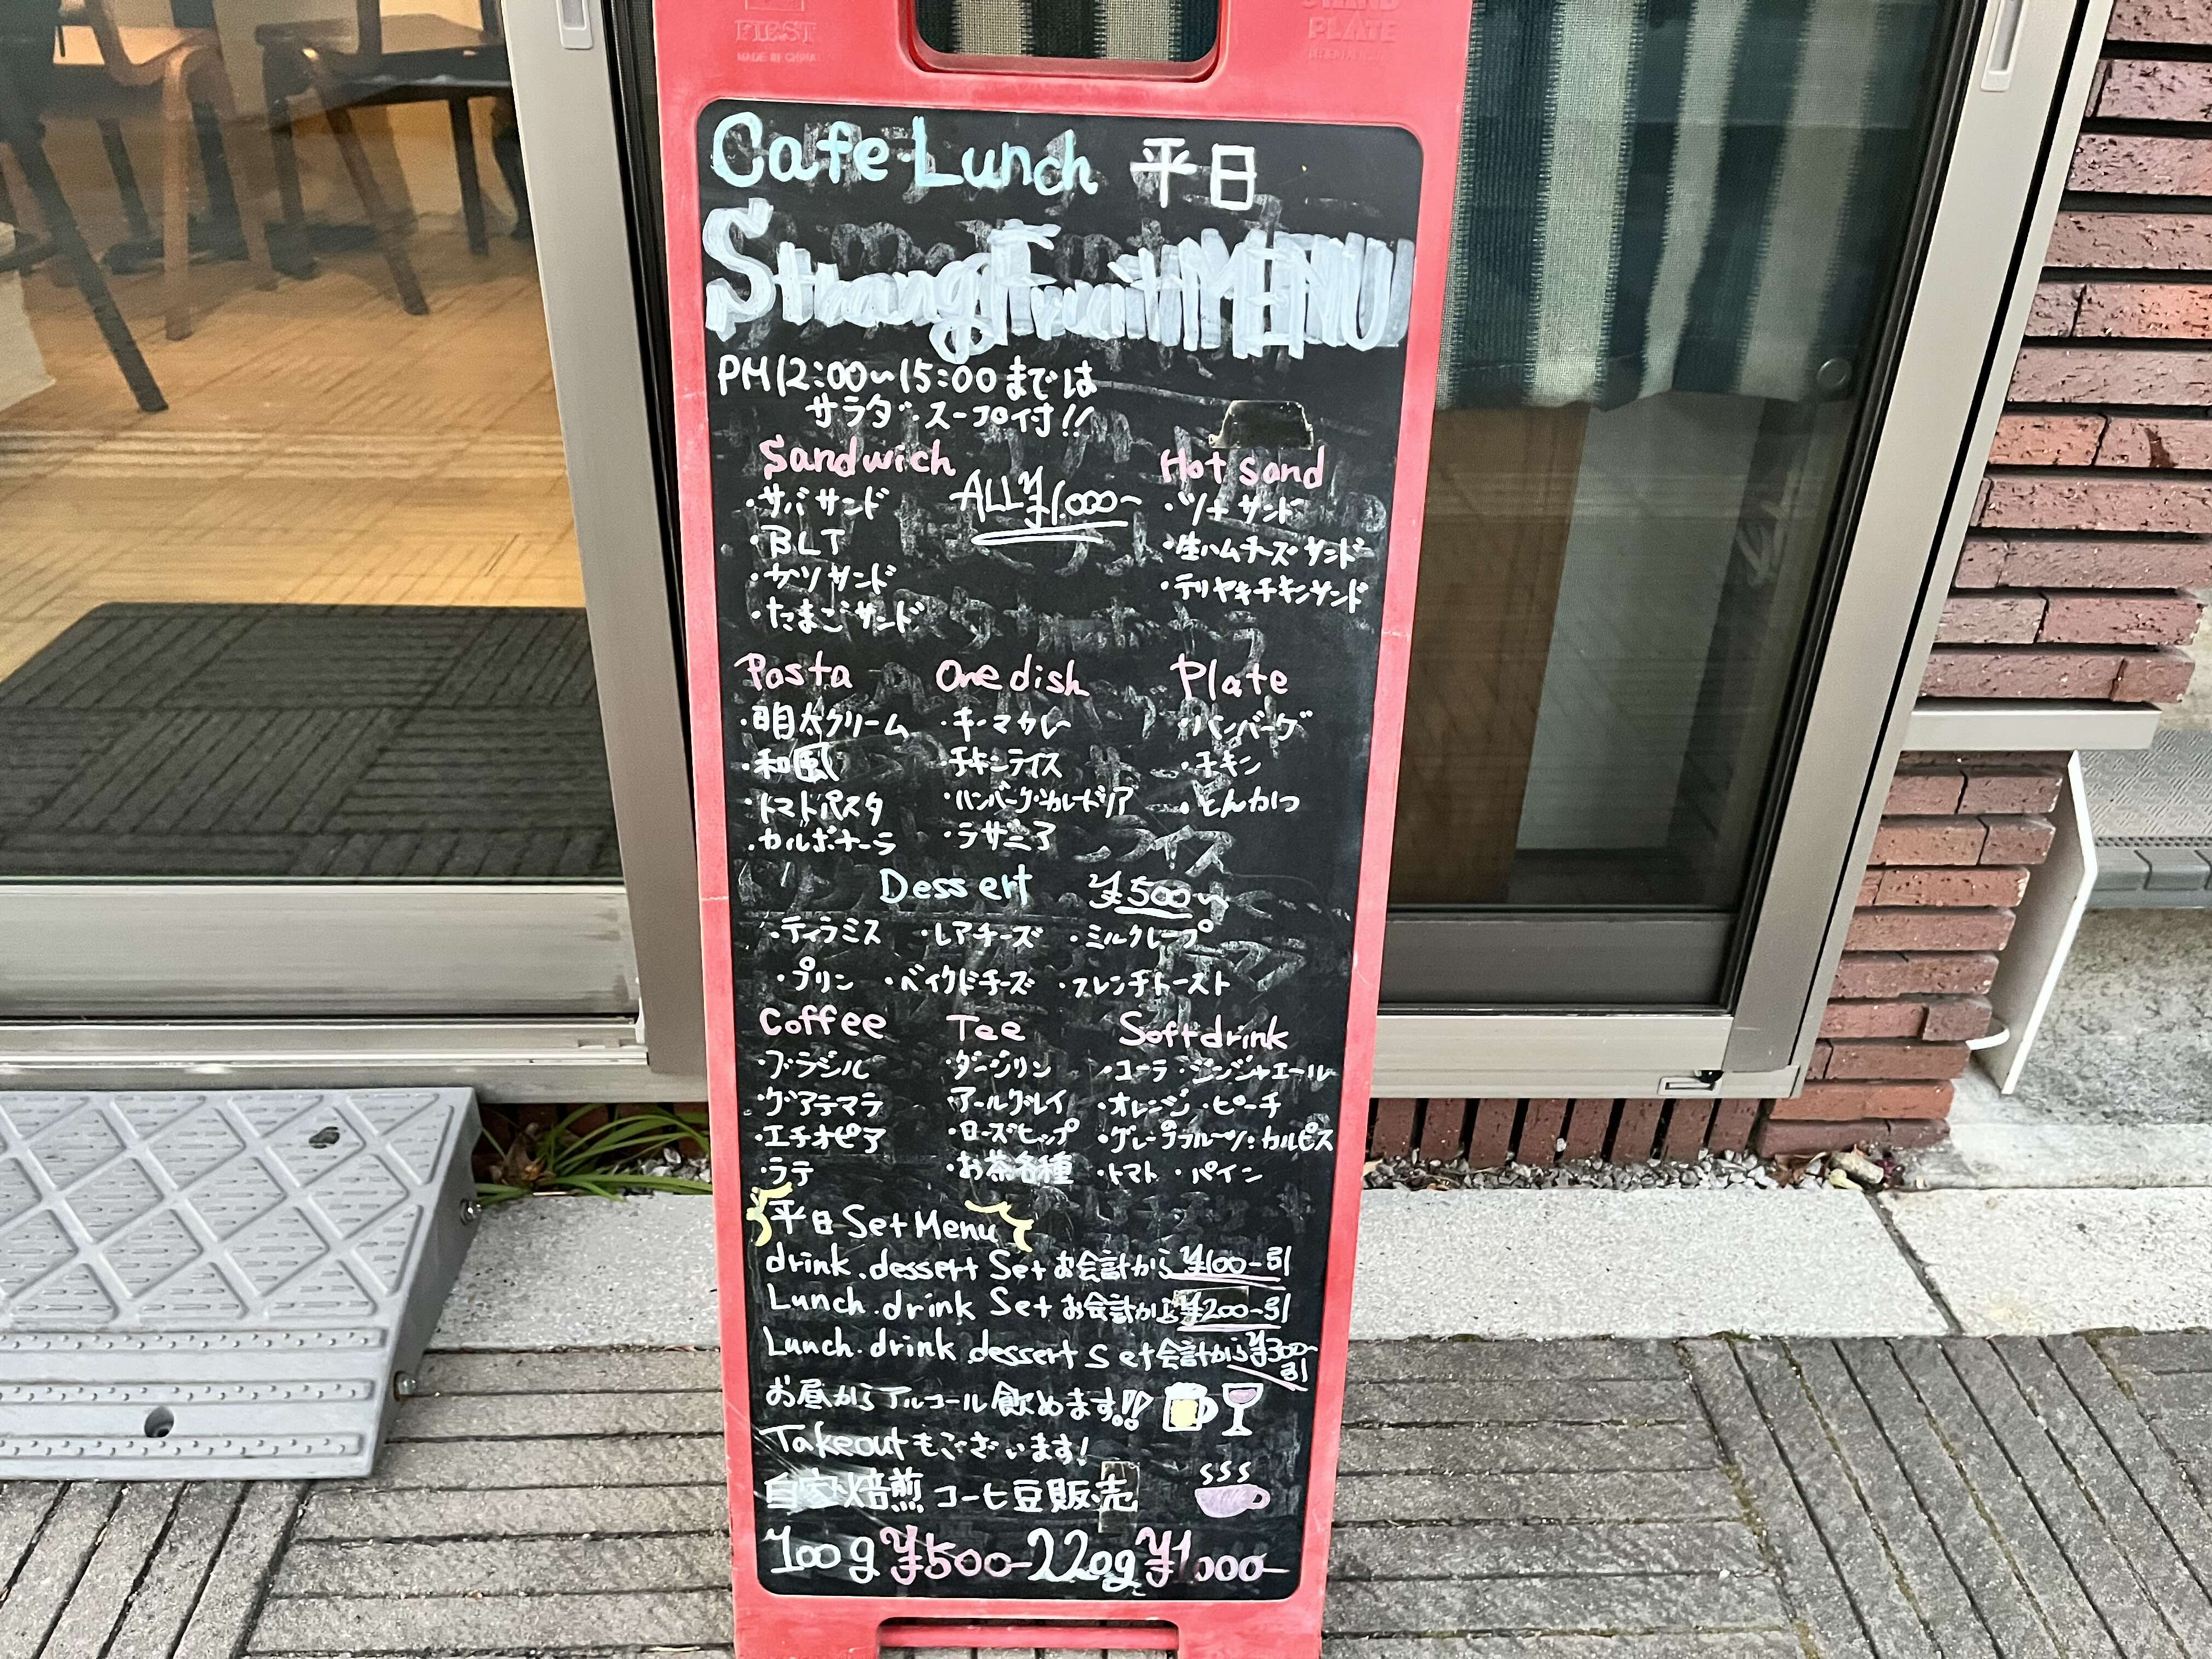 FIEST
MADE IN CHINA
STAND
PLATE
Cafe・Lunch 平日
StrangFruitMENU
PM12:00〜15:00までは
サラダ・スープ付!!
Sandwich
ALL¥1.000~
Hot sand
・サバサンド
・BLT
・カツサンド
・たまごサンド
・ツナサンド
・生ハムチーズサンド
・テリヤキチキンサンド
Pasta
One dish
Plate
・明太クリーム
・和風
・トマトパスタ
・カルボナーラ
・キーマカレー
・チキンライス
・ハンバーグ・カレードリア
・ラザニア
・ハンバーグ
・チキン
・とんかつ
Dessert ¥500~
・ティラミス ・レアチーズ ・ミルクレープ
・プリン ・ベイクドチーズ ・フレンチトースト
Coffee
Tee
Softdrink
・ブラジル
・グアテマラ
・エチオピア
・ラテ
・ダージリン
・アールグレイ
・ローズヒップ
・お茶各種
・コーラ ・ジンジャエール
・オレンジ ・ピーチ
・グレープフルーツ ・カルピス
・トマト ・パイン
平日 Set Menu
drink.dessert Set お会計から¥100-引
Lunch.drink Set お会計から¥200-引
Lunch.drink.dessert Set会計から¥300-
引
お昼からアルコール飲めます!!
Takeoutもございます!
自家焙煎コーヒ豆販売
100g¥500-220g¥1.000-